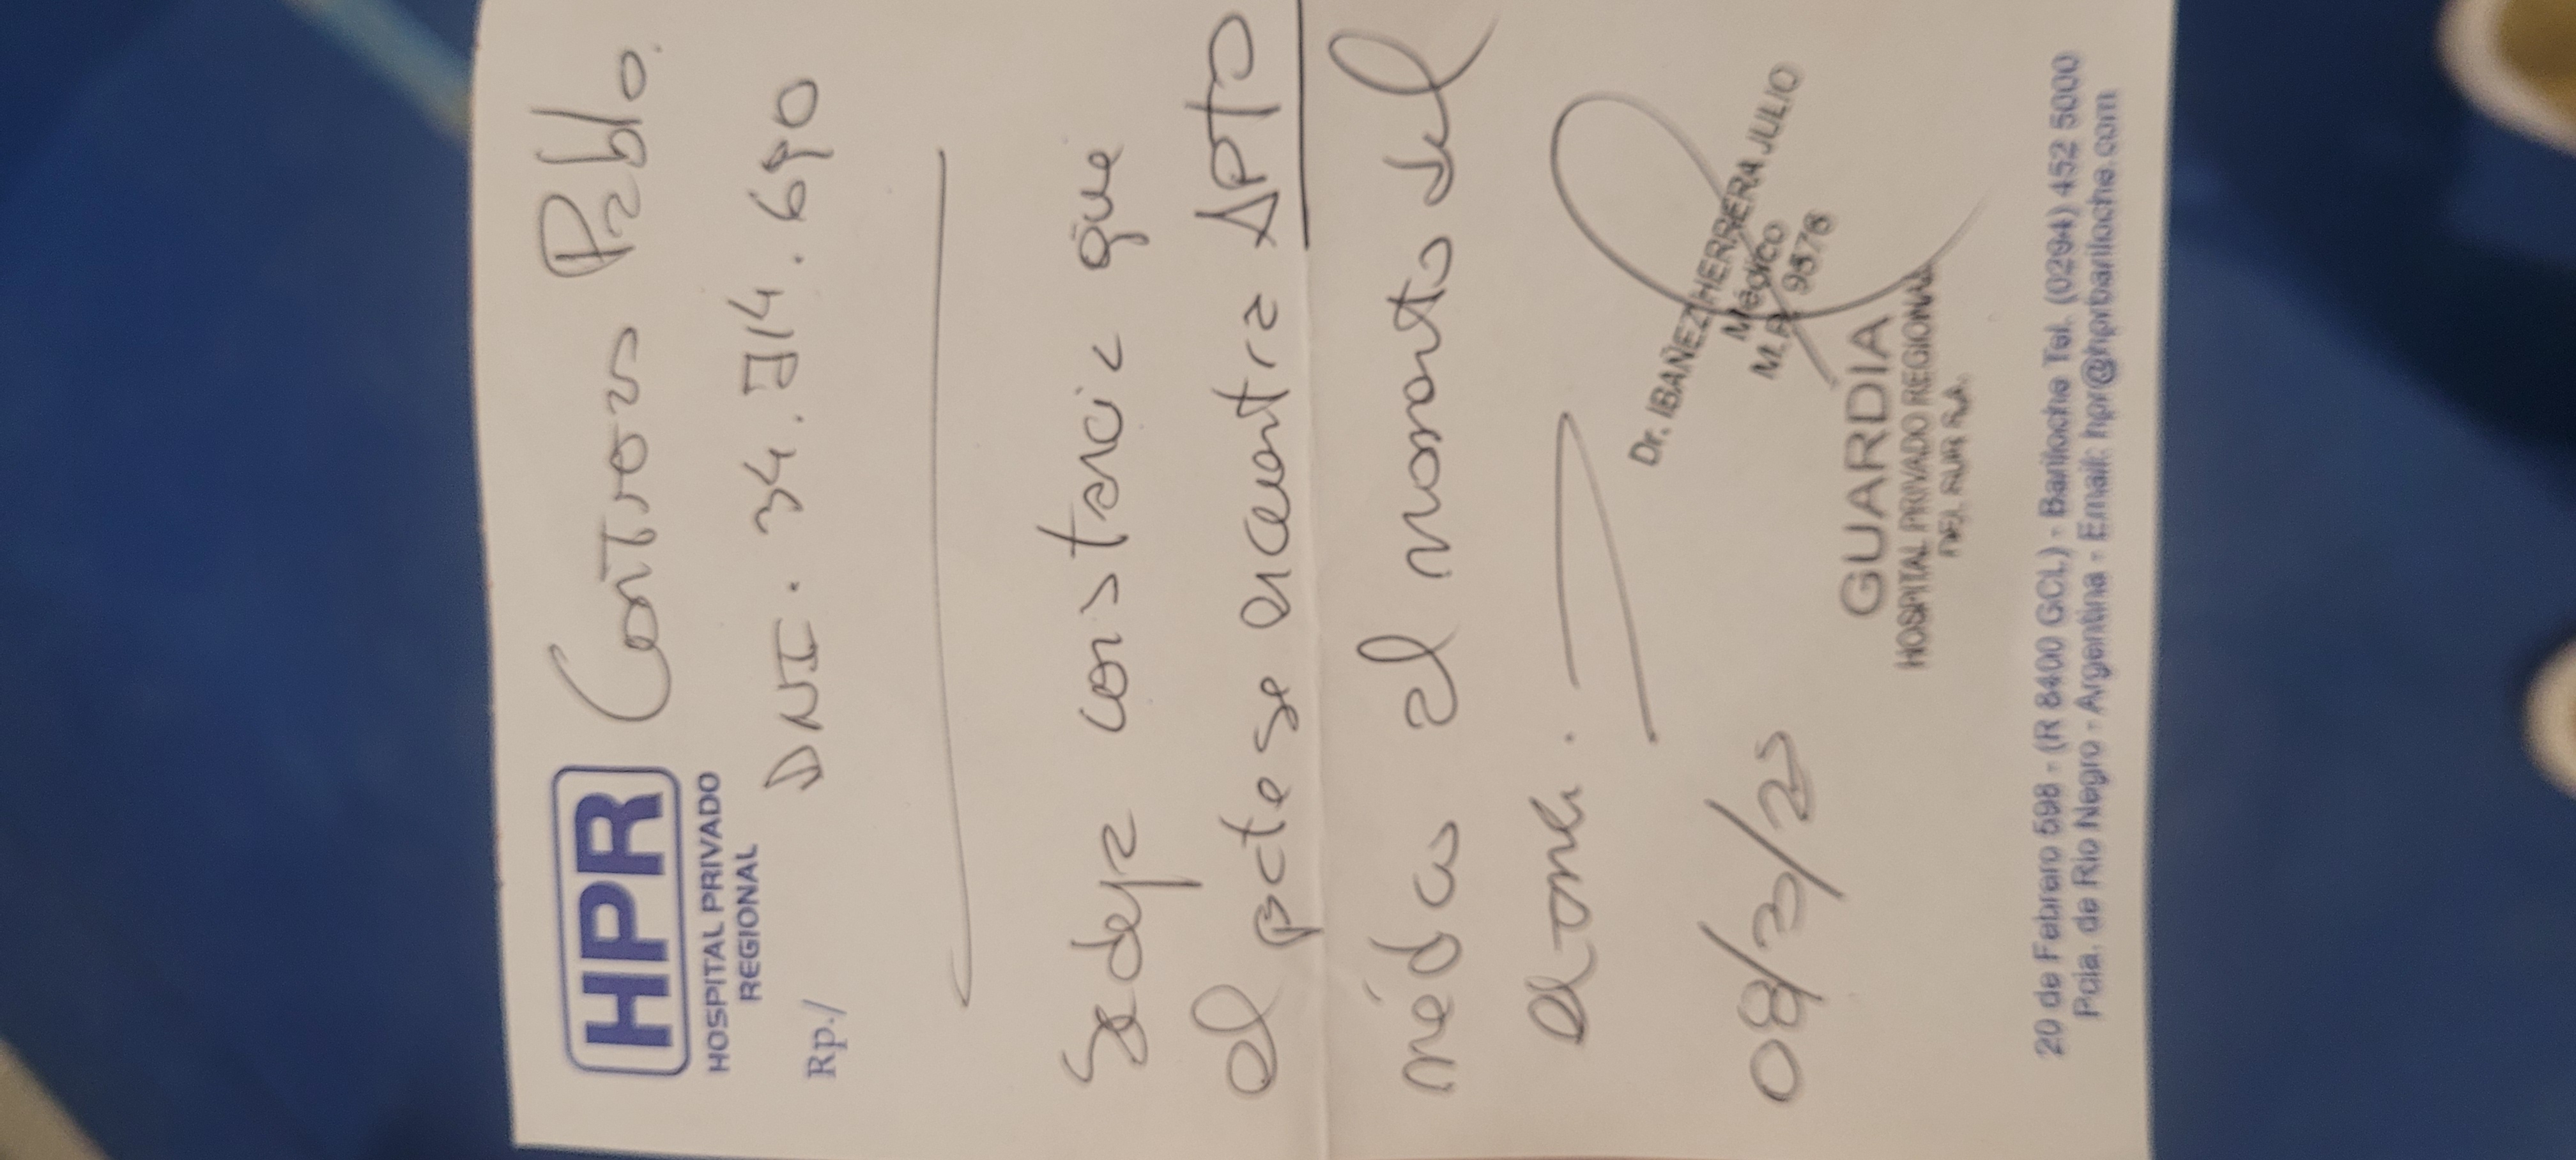 HPR
HOSPITAL PRIVADO
REGIONAL
Contreras Pablo.
DNI. 34.714.690
Rp./
Se deja constancia que
el pcte se encuentra APTO
médico al momento del
examen.
08/3/25
Dr. IBAÑEZ HERRERA JULIO
Médico
M.P. 9576
GUARDIA
HOSPITAL PRIVADO REGIONAL
DEL SUR S.A.
20 de Febrero 598 - (R 8400 GCL) - Bariloche Tel. (0294) 452 5000
Pcia. de Rio Negro - Argentina - Email: hpr@hprbariloche.com